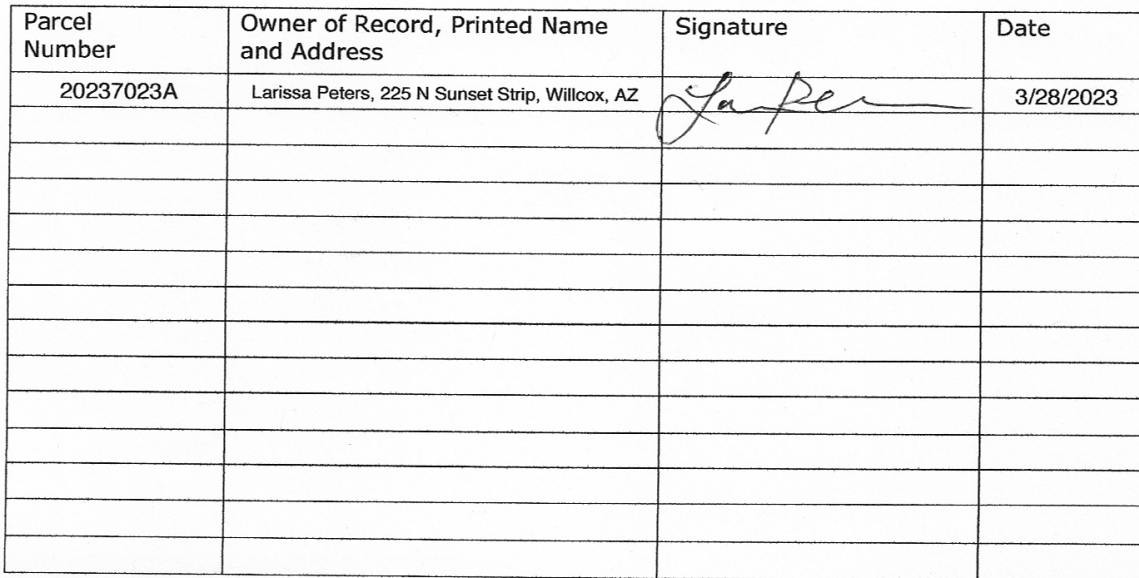 Parcel
Number
Owner of Record, Printed Name
and Address
Signature
Date
20237023A
Larissa Peters, 225 N Sunset Strip, Willcox, AZ
3/28/2023